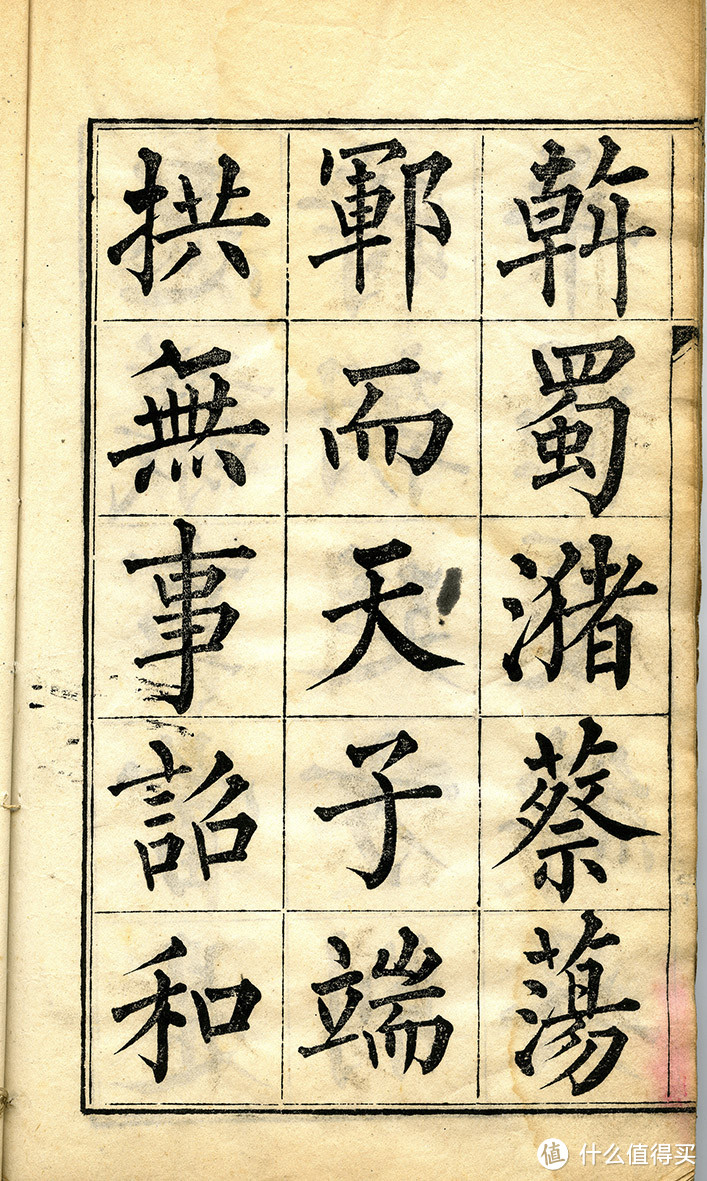 斡蜀潴蔡蕩
鄆而天子端
拱無事詔和
值 什么值得买